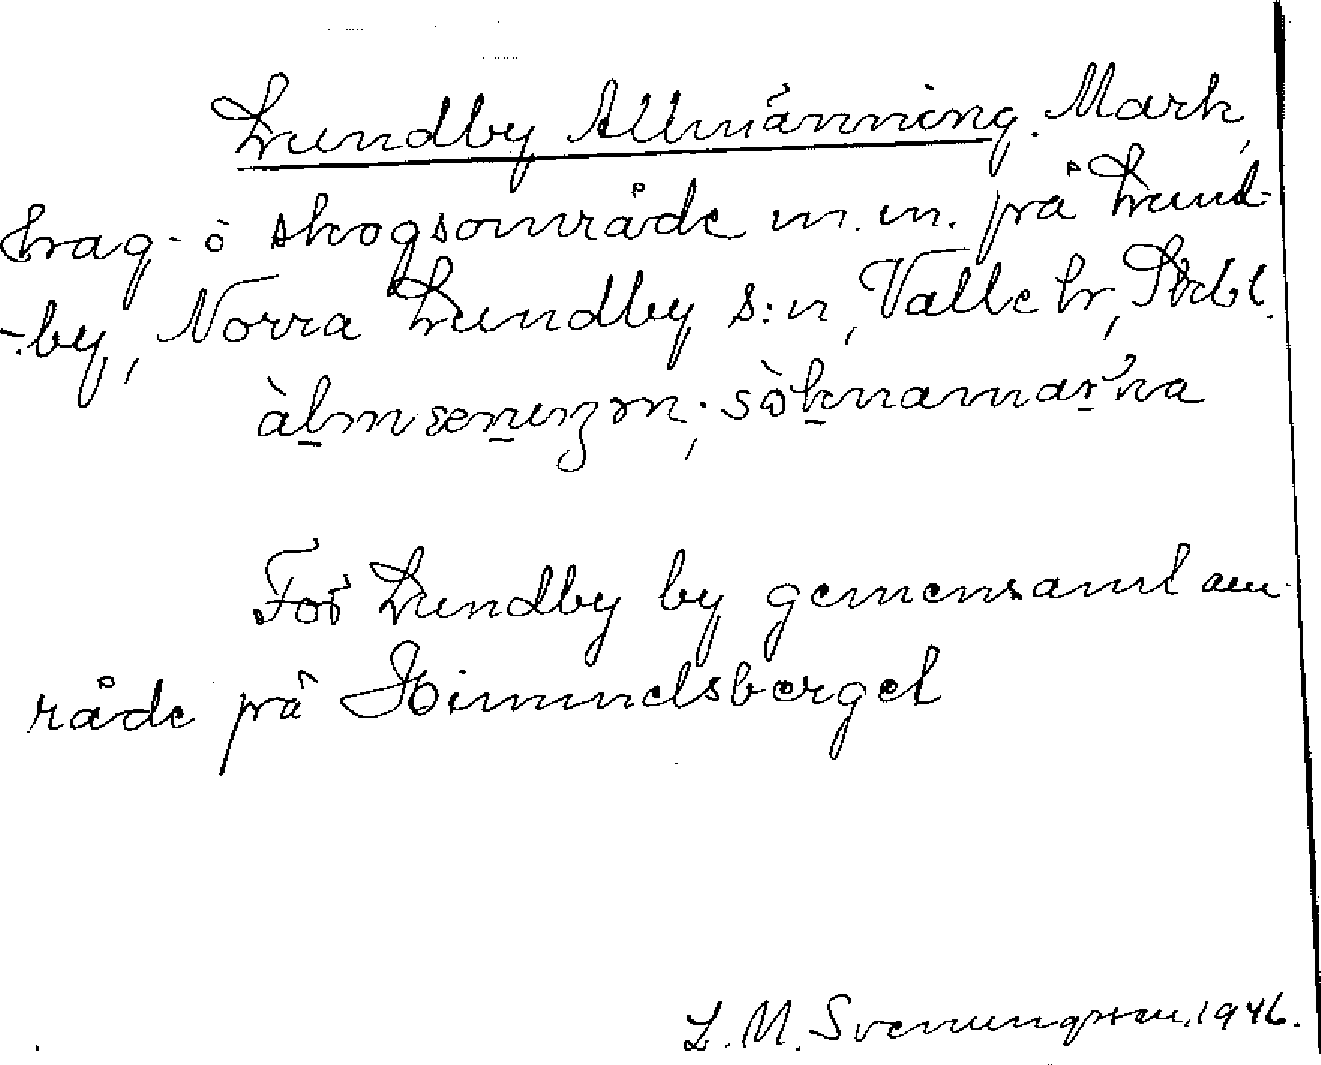 Lundby Allmänning. Mark,
hag- o skogsområde m.m. på Lund-
-by, Norra Lundby s:n, Valle hr, Skbl.
àlmsænıŋən; sòknamaṛka
För Lundby by gemensamt om-
råde på Himmelsberget
L. M. Svenungsson. 1946.